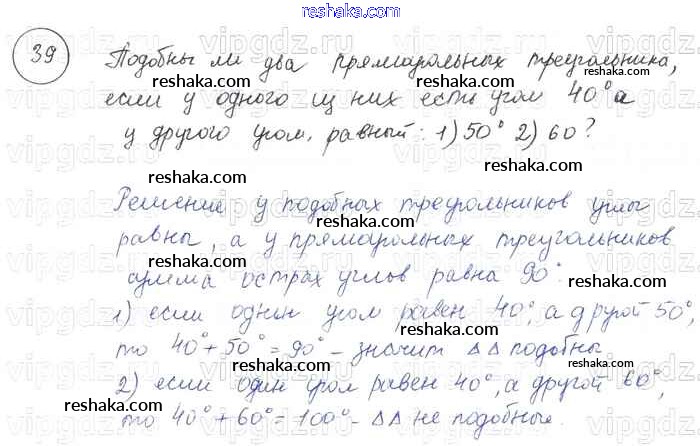 reshaka.com
39 Подобны ли два прямоугольных треугольника,
reshaka.com reshaka.com
если у одного из них есть угол 40° а
у другого угол, равный: 1) 50° 2) 60?
reshaka.com
reshaka.com
Решение у подобных треугольников углы
reshaka.com
равны, а у прямоугольных треугольников
reshaka.com
сумма острах углов равна 90°.
reshaka.com reshaka.com
1) если один угол равен 40°, а другой 50°,
reshaka.com
то 40° + 50° = 90° - значит ΔΔ подобны
reshaka.com
2) если один угол равен 40°, а другой 60°,
reshaka.com
то 40° + 60° = 100° - ΔΔ не подобные.
reshaka.com